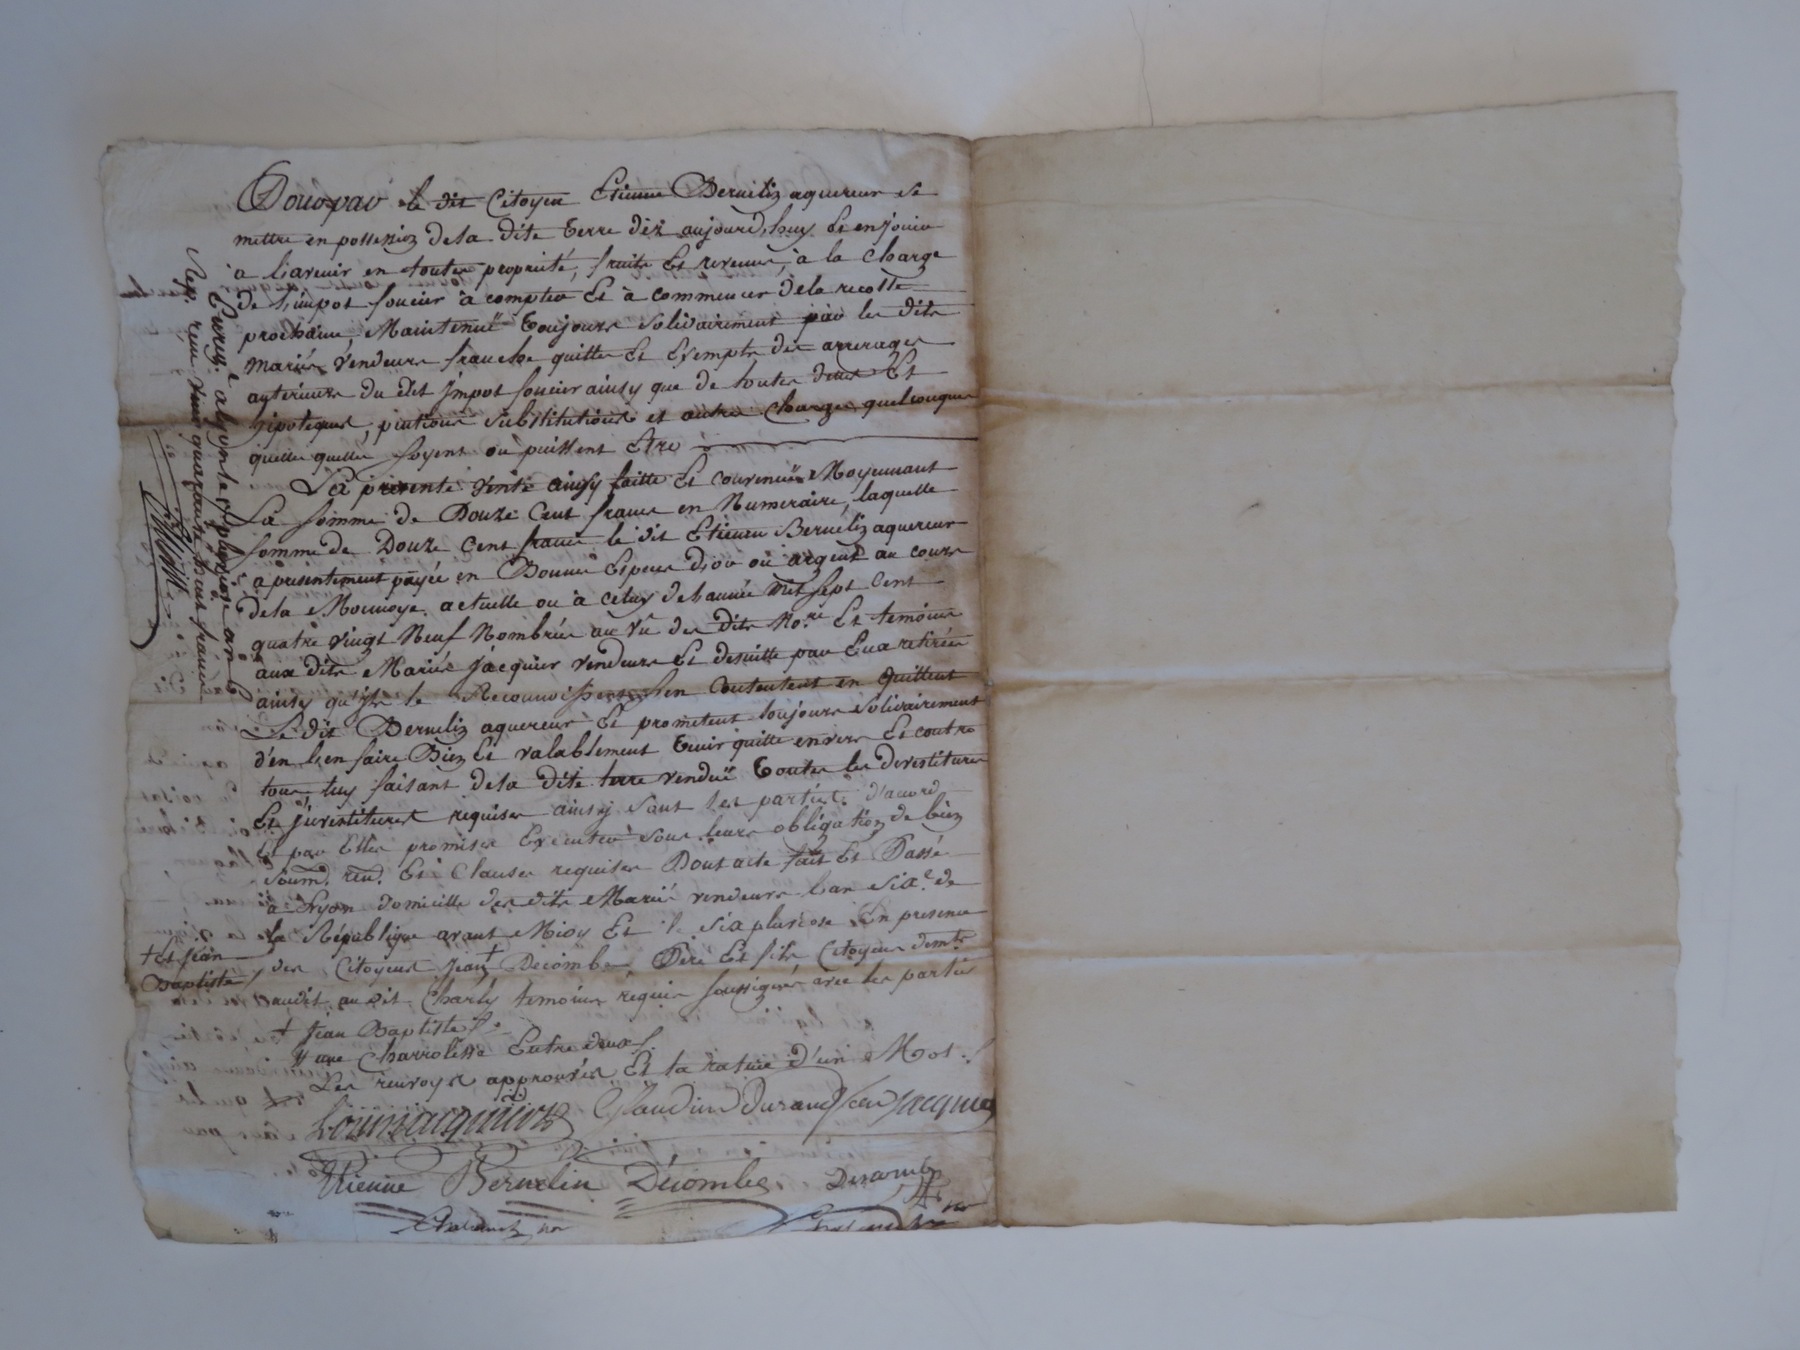 Donc par le dit Citoyen Etienne Bernelin aquereur se
mettre en possession de la dite terre dez aujourd,huy Et en jouir
a L'avenir en toutte propriété, fruits Et revenus, à la Charge
de L'impot foncier à compter Et à commencer de la recolte
prochaine, Maintenuë toujours Solidairement par les dits
mariés vendeurs franche quitte Et Exempte des arrerages
anterieurs du dit jmpot foncier ainsy que de toutes dettes Et
hipoteques, Substitutions et autres Charges quelconques
quelles quelles soyent ou puissent Etre
La presente vente ainsy faitte Et convenuë Moyennant
La somme de Douze Cent francs en Numeraire, laquelle
somme de Douze Cent francs le dit Etienne Bernelin aquereur
a presentement payée en Bonnes Especes d'or ou argent au cours
de la Monnoye actuelle ou à celuy de L'année mil sept Cent
quatre vingt Neuf Nombrées au vû des dits No.re Et temoins
aux dits Mariés jacquier vendeurs Et desuitte par Eux retirées
ainsy qu'ils le Reconnoissent sen Contentent en quittent
Le dit Bernelin aquereur Et promettent toujours Solidairement
d'en L'en faire Bien Et valablement tenir quitte envers Et contre
tous, luy faisant de la dite terre venduë toutes les devestitures
Et jnvestitures requises ainsy sont les parties d'accord
Et par Elles promises Executer sous leurs obligation de bien
soum.d ren.d Et Clauses requises Dont acte fait Et Passé
a Lyon domicille des dits Mariés vendeurs L'an Six.e de
la République avant Midy Et le Six pluviose En presence
+ Et jean Baptiste / des Citoyens Jean + Decombe, Père Et fils Citoyens demts
audit au dit Charly temoins requis soussignés avec les parties
+ Jean Baptiste /.
# une Charrolisse Entre deux /.
Les renvoys approuvés Et la rature d'un Mot ./
Louis jacquier Claudine Durand fem jacquier
Etienne Bernelin Décombe Decombe
Enreg.é a Lyon le 9 pluviose an 6
Rep. reçu quarante huit francs